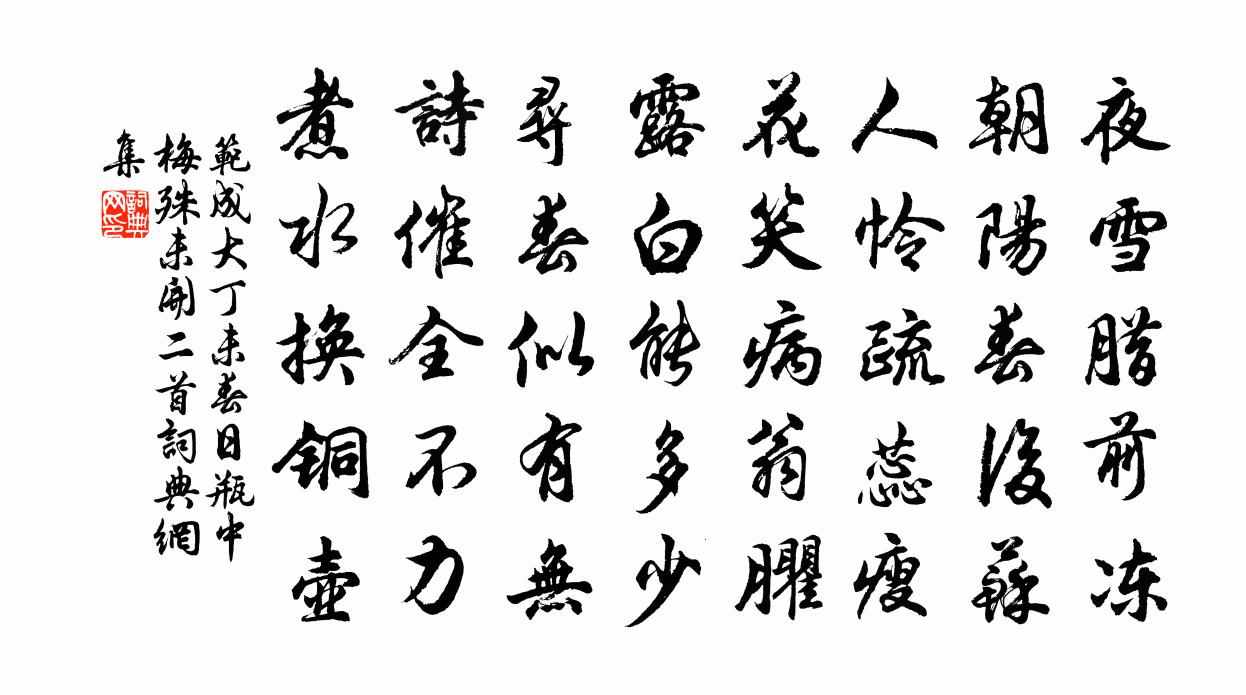 夜雪腊前冻
朝陽春後蘇
人怜疏蕊瘦
花笑病翁臞
露白能多少
尋春似有無
詩催全不力
煮水換銅壺
範成大丁未春日瓶中
梅殊未開二首詞典網
集
詞典网印